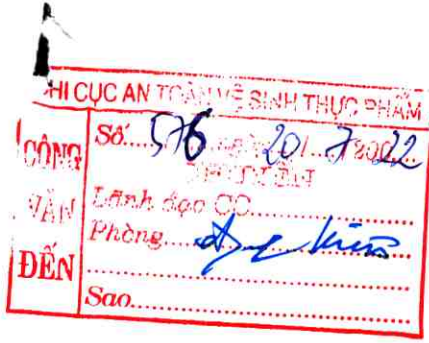 HI CỤC AN TOÀN VỆ SINH THỰC PHẨM
CÔNG VĂN ĐẾN
Số.... 576 20/...7/2022
Lãnh đạo CC....................
Phòng....
Sao..............................